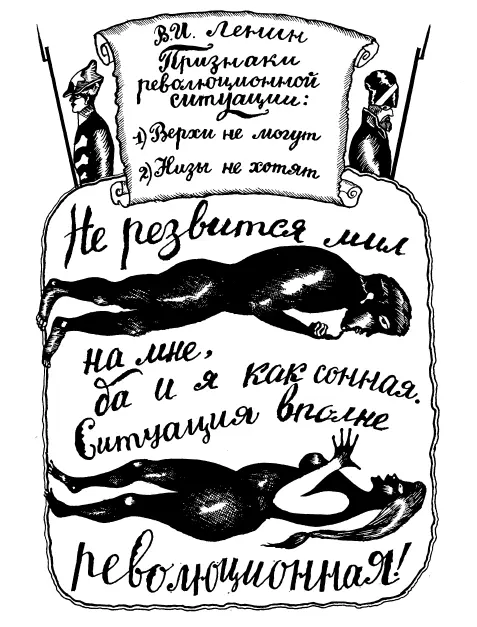 В.И. Ленин
Признаки
революционной
ситуации:
1) Верхи не могут
2) Низы не хотят
Не резвится мил
на мне,
да и я как сонная.
Ситуация вполне
революционная!